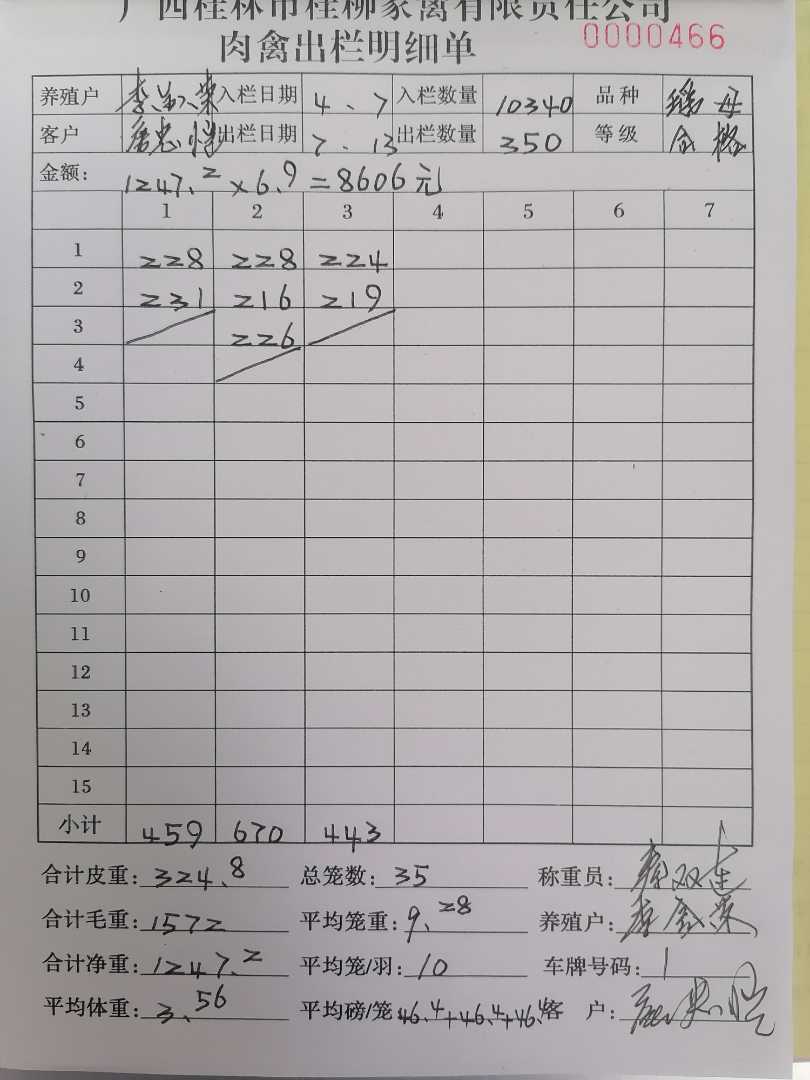 广西桂林市桂柳家禽有限责任公司
肉禽出栏明细单 0000466
养殖户 入栏日期 4.7 入栏数量 10340 品种 瑶母
客户 出栏日期 7.13 出栏数量 350 等级 合格
金额: 1247.2×6.9=8606元
1 2 3 4 5 6 7
1 228 228 224
2 231 216 219
3 226
4
5
6
7
8
9
10
11
12
13
14
15
小计 459 670 443
合计皮重: 324.8 总笼数: 35 称重员:
合计毛重: 1572 平均笼重: 9.28 养殖户:
合计净重: 1247.2 平均笼/羽: 10 车牌号码: 1
平均体重: 3.56 平均磅/笼: 46.4+46.4+46.4 客户: